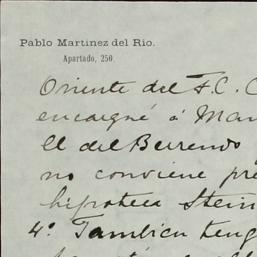 Pablo Martinez del Rio.
Apartado, 250.
Oriente del F. C. C
encargné á Man
El del Berrendo
no conviene pre
hipoteca Stein
4º Tambien teng